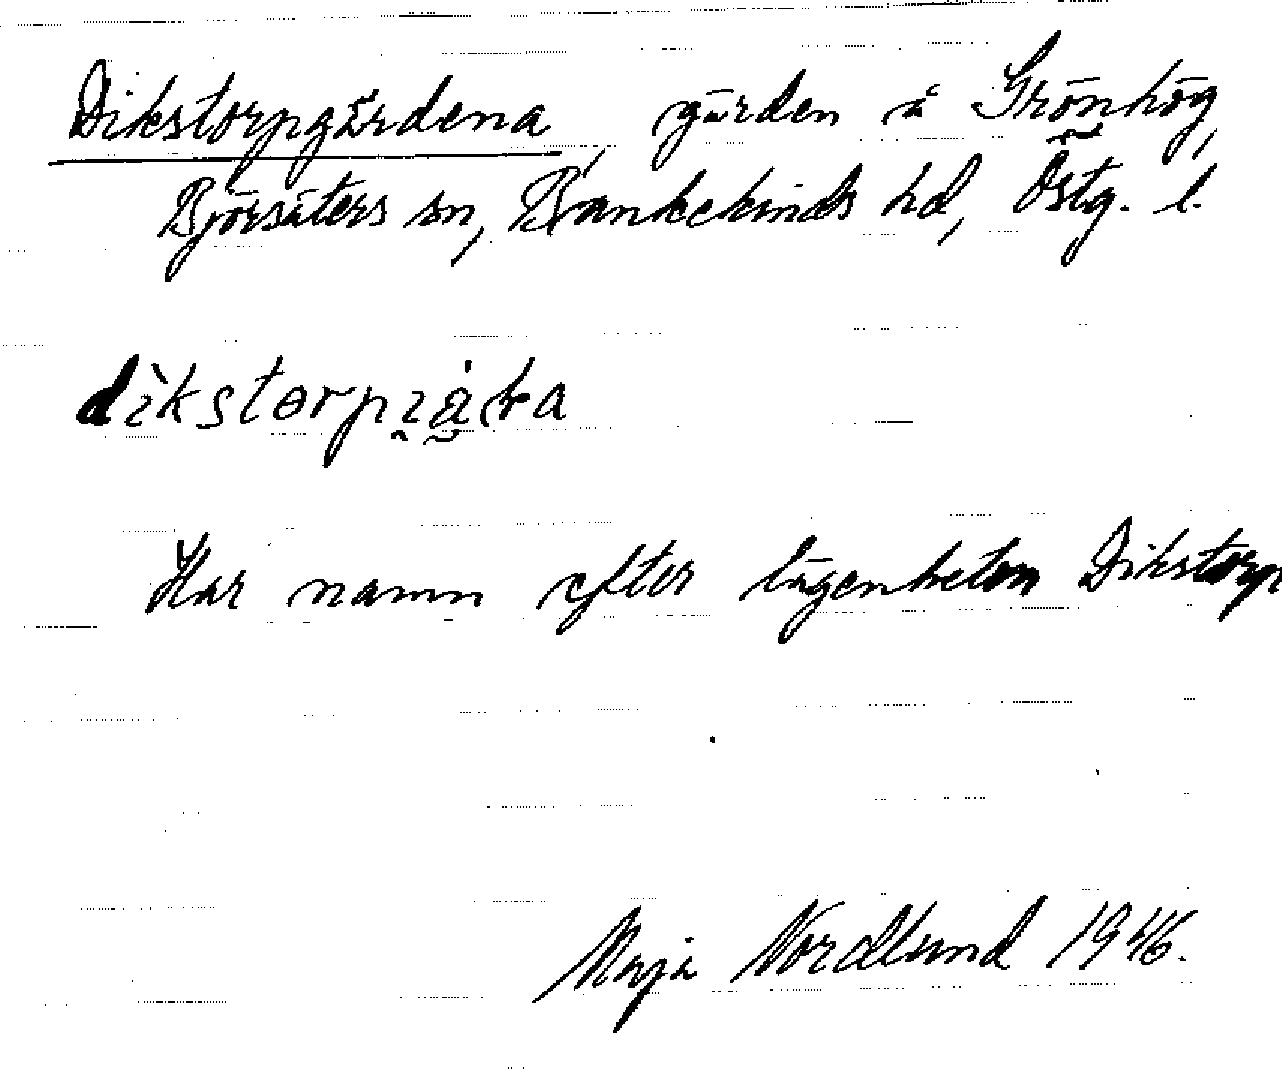 Dikstorpgärdena gärden å Grönhög,
Björsäters sn, Bankekinds hd, Östg. l.
Har namn efter lägenheten Dikstorp
Maja Nordlund 1946.